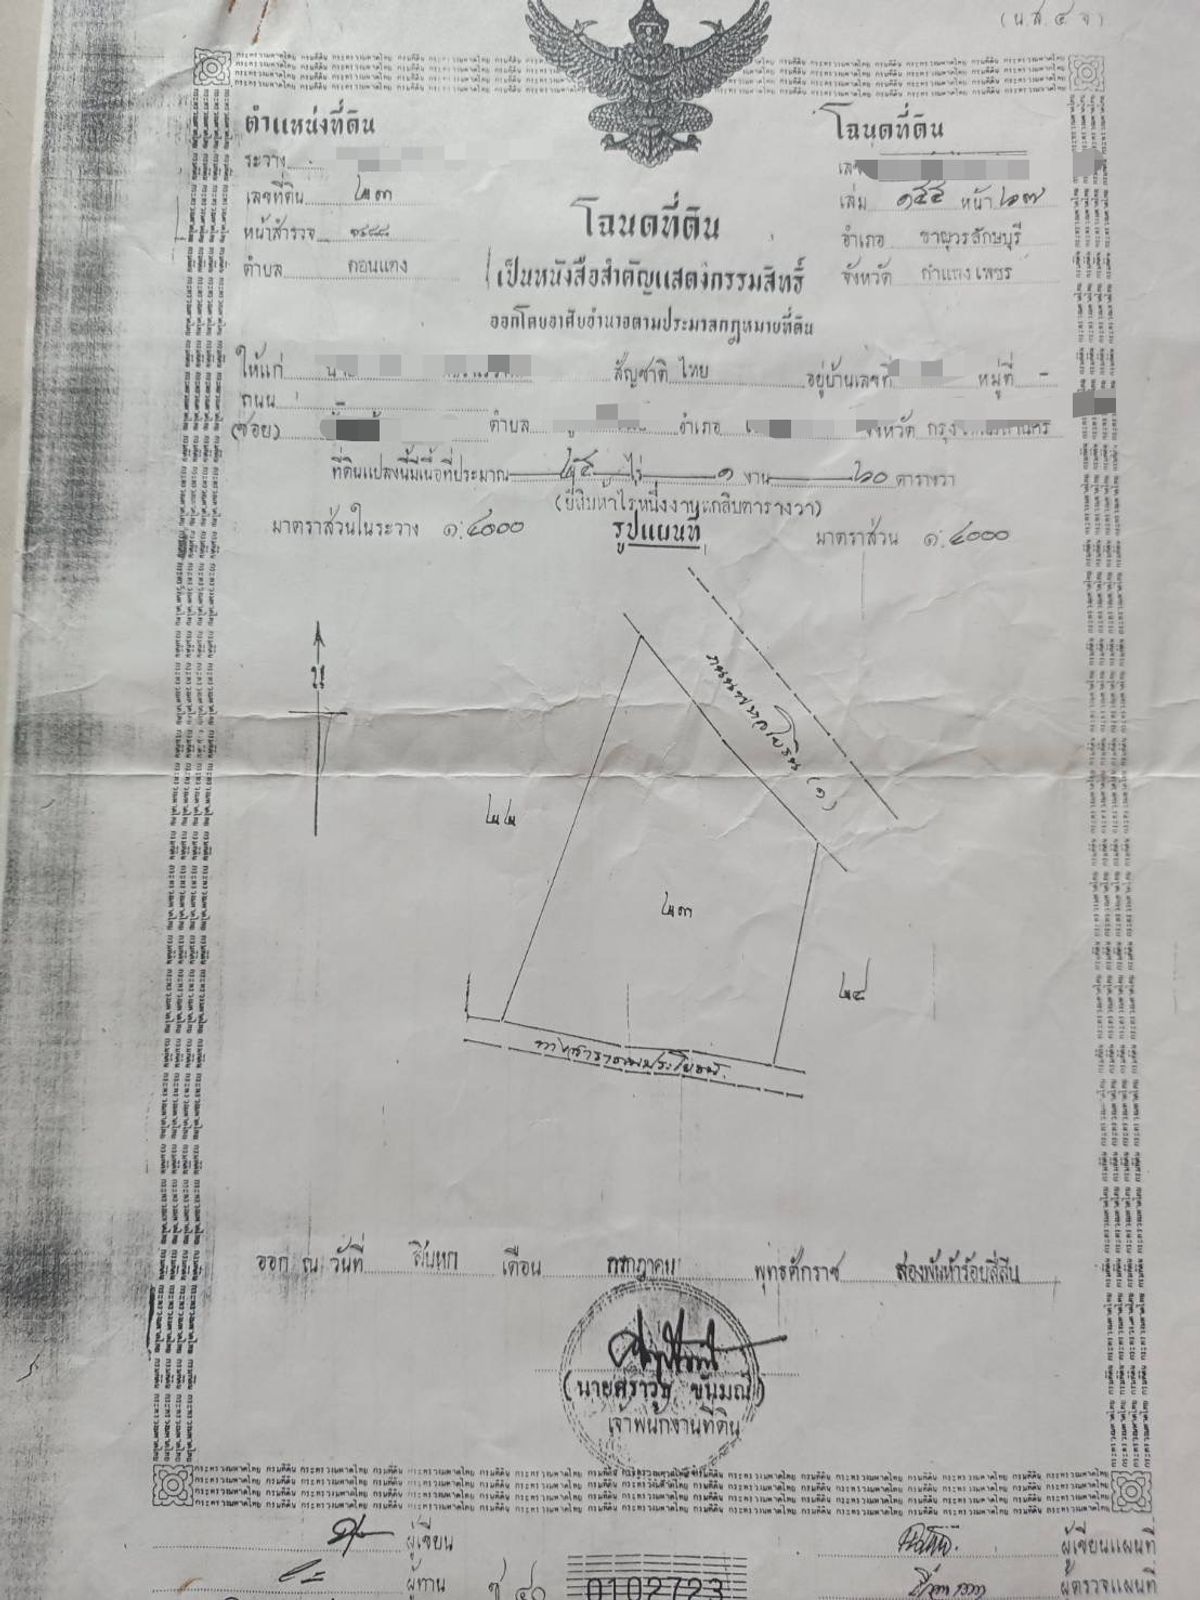 (น.ส. ๔ จ)
ตำแหน่งที่ดิน
โฉนดที่ดิน
ระวาง
เลขที่ดิน ๒๓
เล่ม ๑๕๕ หน้า ๒๗
หน้าสำรวจ ๑๔๘๘
โฉนดที่ดิน
อำเภอ ขาณุวรลักษบุรี
ตำบล ดอนแตง
เป็นหนังสือสำคัญแสดงกรรมสิทธิ์
จังหวัด กำแพงเพชร
ออกโดยอาศัยอำนาจตามประมวลกฎหมายที่ดิน
ให้แก่ สัญชาติ ไทย อยู่บ้านเลขที่ หมู่ที่ -
ถนน
(ซอย) ตำบล อำเภอ จังหวัด
ที่ดินแปลงนี้มีเนื้อที่ประมาณ ๒๕ ไร่ ๑ งาน ๖๐ ตารางวา
(ยี่สิบห้าไร่หนึ่งงานหกสิบตารางวา)
มาตราส่วนในระวาง ๑:๔๐๐๐
รูปแผนที่
มาตราส่วน ๑:๔๐๐๐
น
ถนนพหลโยธิน (๑)
๒๒
๒๓
๒๔
ทางสาธารณประโยชน์
ออก ณ วันที่ สิบหก เดือน กรกฎาคม พุทธศักราช สองพันห้าร้อยสี่สิบ
(นายศราวุธ ขันมณี)
เจ้าพนักงานที่ดิน
ผู้เขียน
ผู้เขียนแผนที่
ผู้ทาน
ช ๔๐
0102723
ผู้ตรวจแผนที่